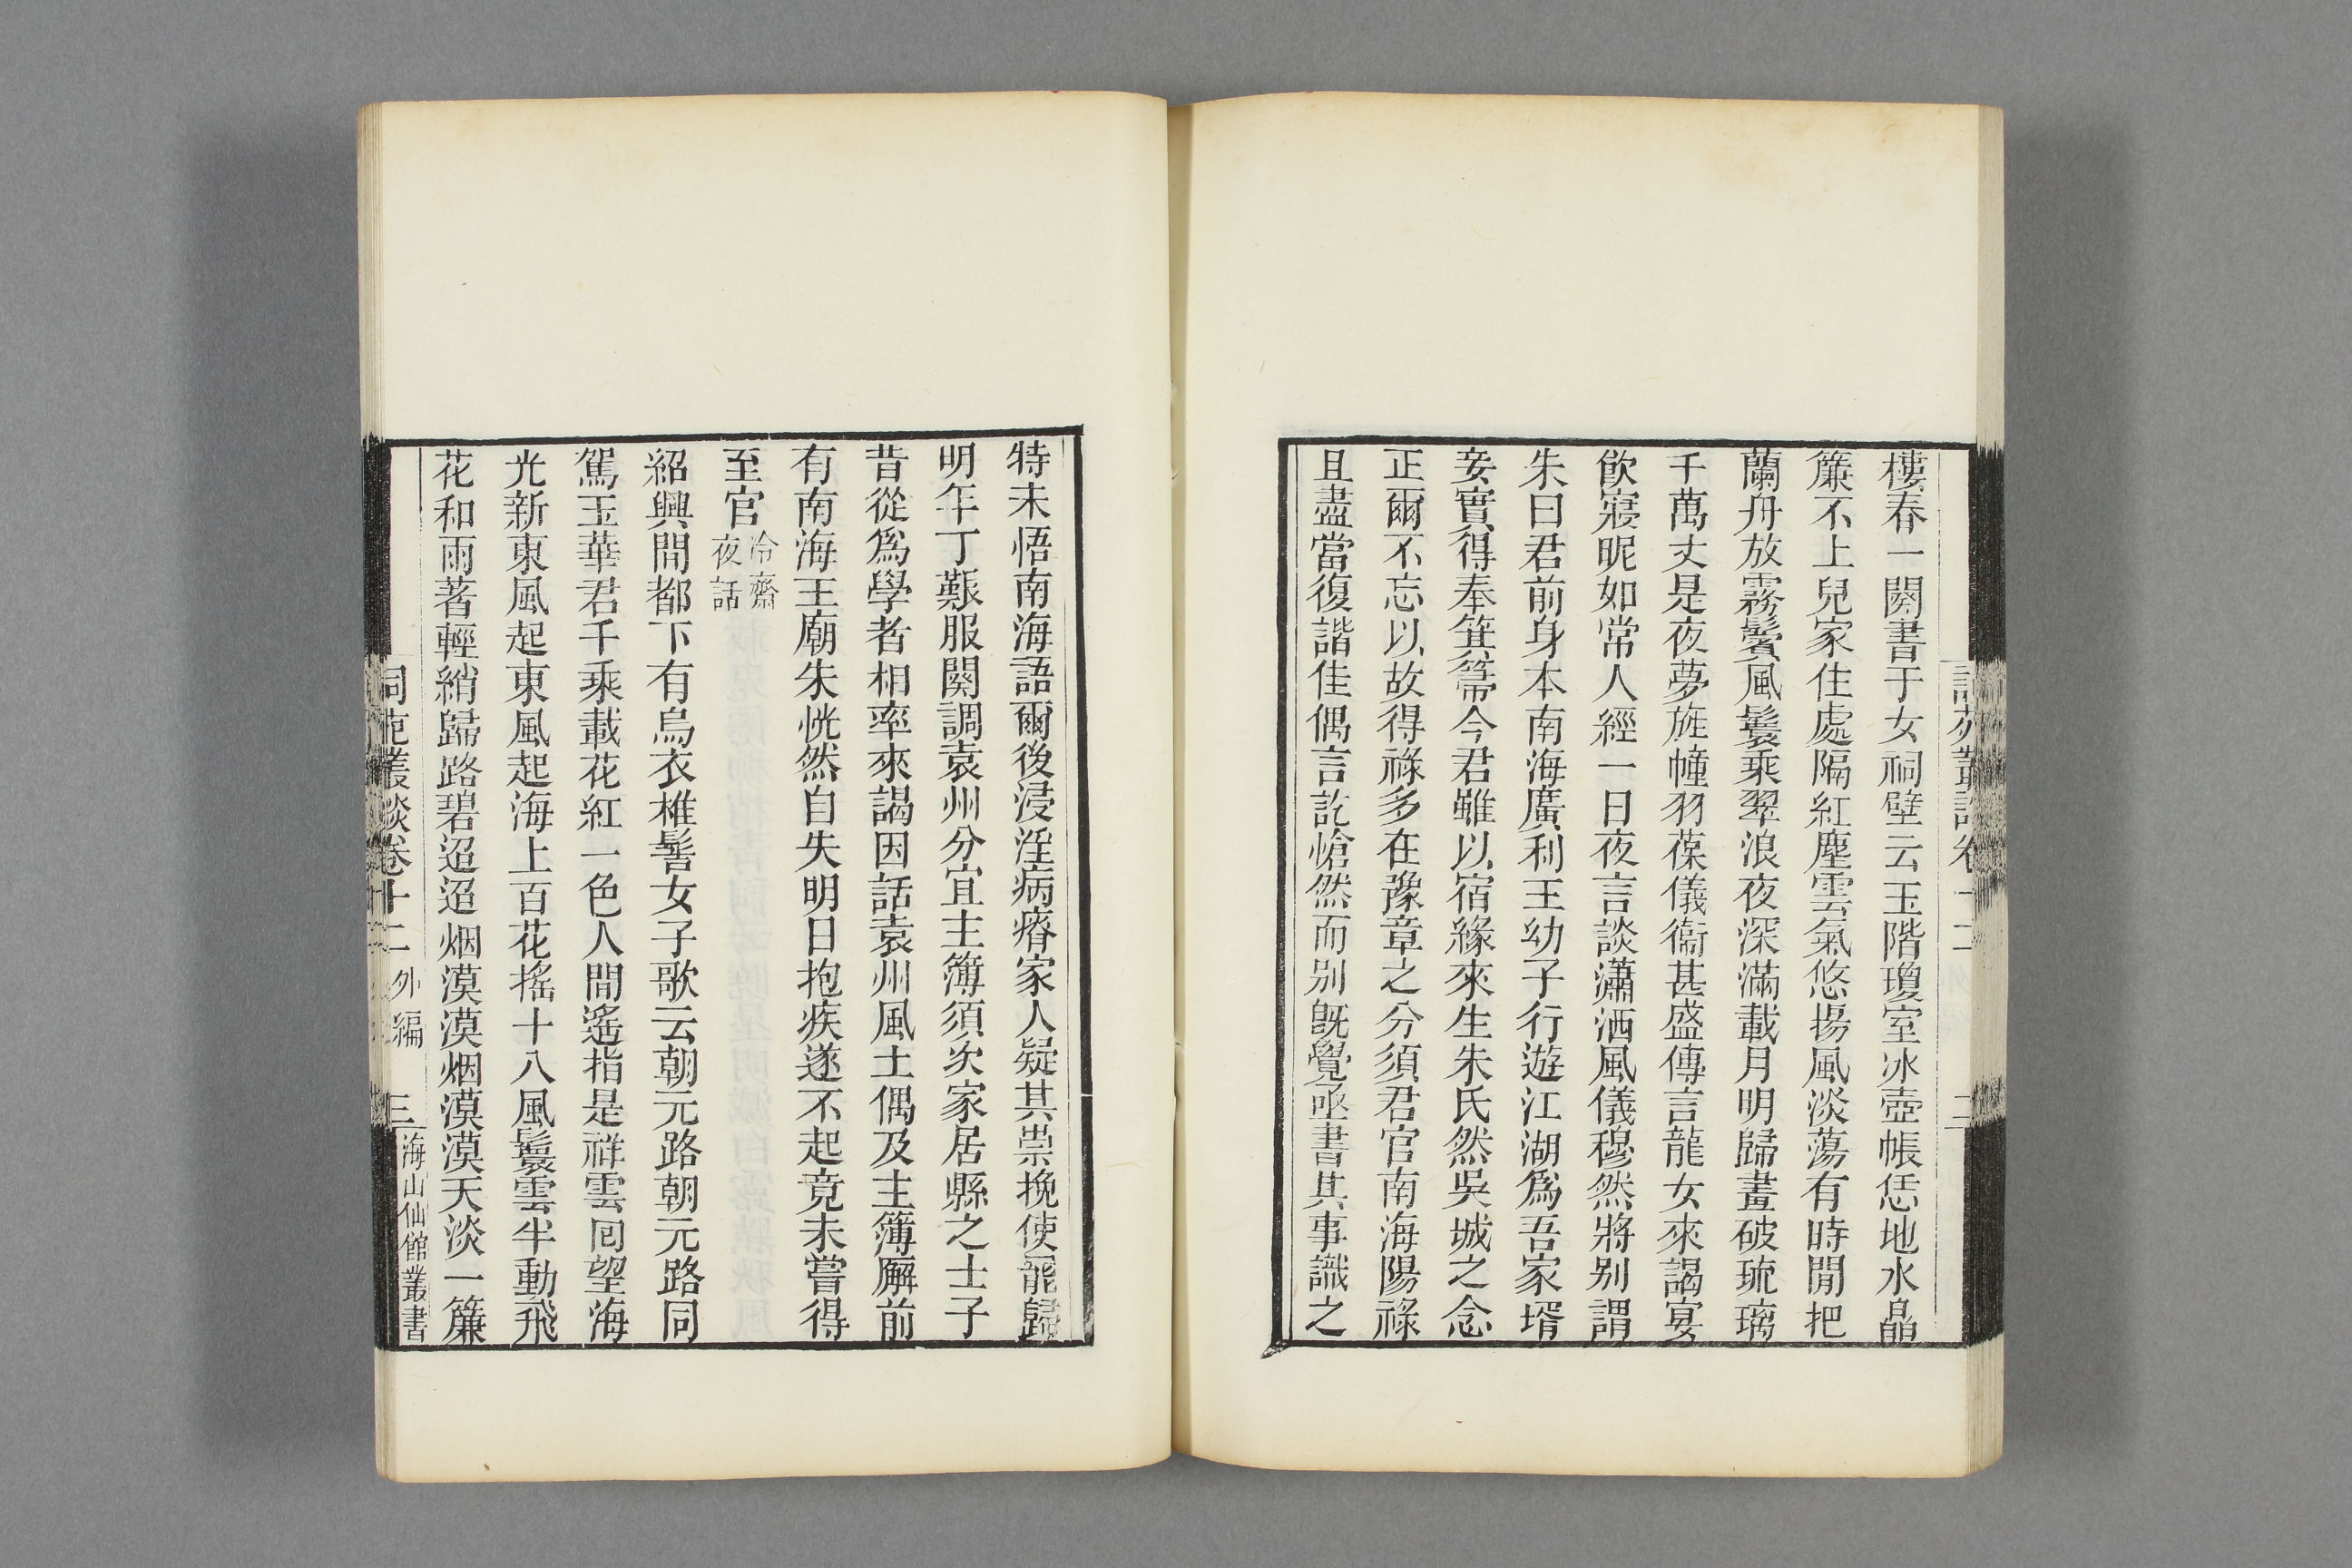 樓春一闋書于女祠壁云玉階瓊室冰壺帳恁地水晶
簾不上兒家住處隔紅塵雲氣悠揚風淡蕩有時閒把
蘭舟放霧鬢風鬟乘翠浪夜深滿載月明歸畫破琉璃
千萬丈是夜夢旌幢羽葆儀衞甚盛傳言龍女來謁宴
飮寢昵如常人經一日夜言談瀟洒風儀穆然將别謂
朱曰君前身本南海廣利王幼子行遊江湖爲吾家壻
妾實得奉箕箒今君雖以宿緣來生朱氏然吳城之念
正爾不忘以故得祿多在豫章之分須君官南海陽祿
且盡當復諧佳偶言訖愴然而别旣覺亟書其事識之
特未悟南海語爾後浸淫病瘠家人疑其祟挽使罷歸
明年丁艱服闋調袁州分宜主簿須次家居縣之士子
昔從爲學者相率來謁因話袁州風土偶及主簿廨前
有南海王廟朱恍然自失明日抱疾遂不起竟未嘗得
至官冷齋夜話
紹興間都下有烏衣椎髻女子歌云朝元路朝元路同
駕玉華君千乘載花紅一色人間遙指是祥雲囘望海
光新東風起東風起海上百花搖十八風鬟雲半動飛
花和雨著輕綃歸路碧迢迢烟漠漠烟漠漠天淡一簾
詞苑叢談卷十二 外編 三 海山仙館叢書